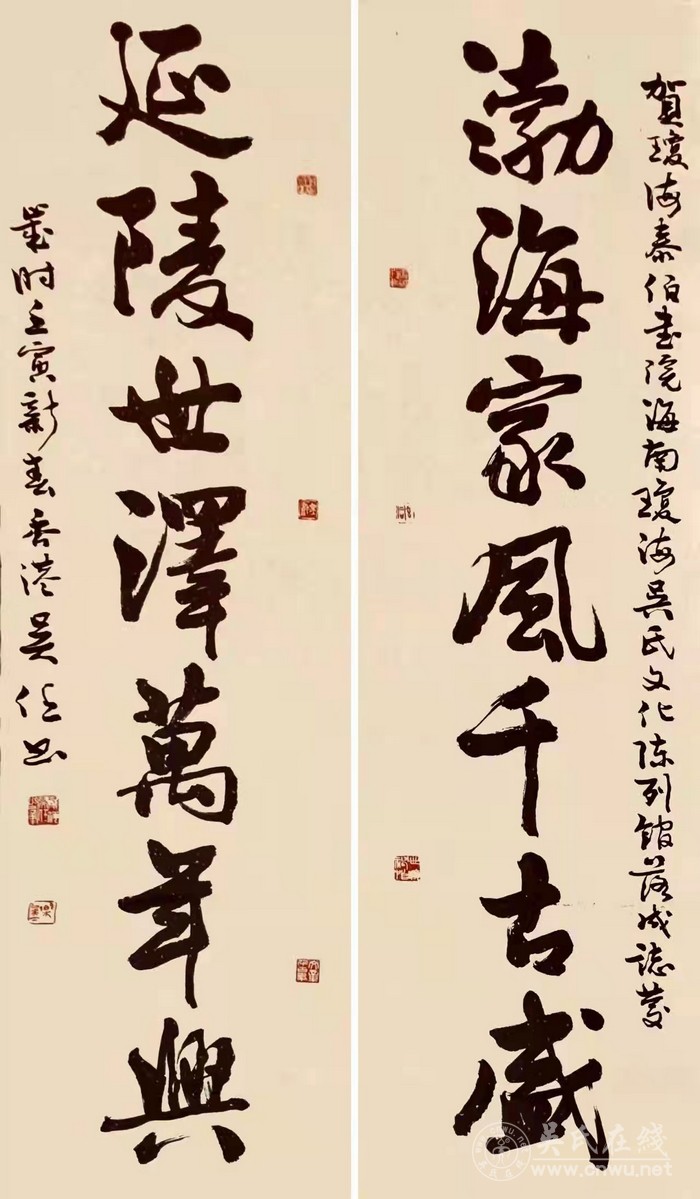 賀瓊海泰伯書院海南瓊海吴氏文化陈列館落成誌慶
渤海家風千古盛
延陵世澤萬年興
歲时壬寅新春香港吴任书
吴氏在线
www.cnwu.net